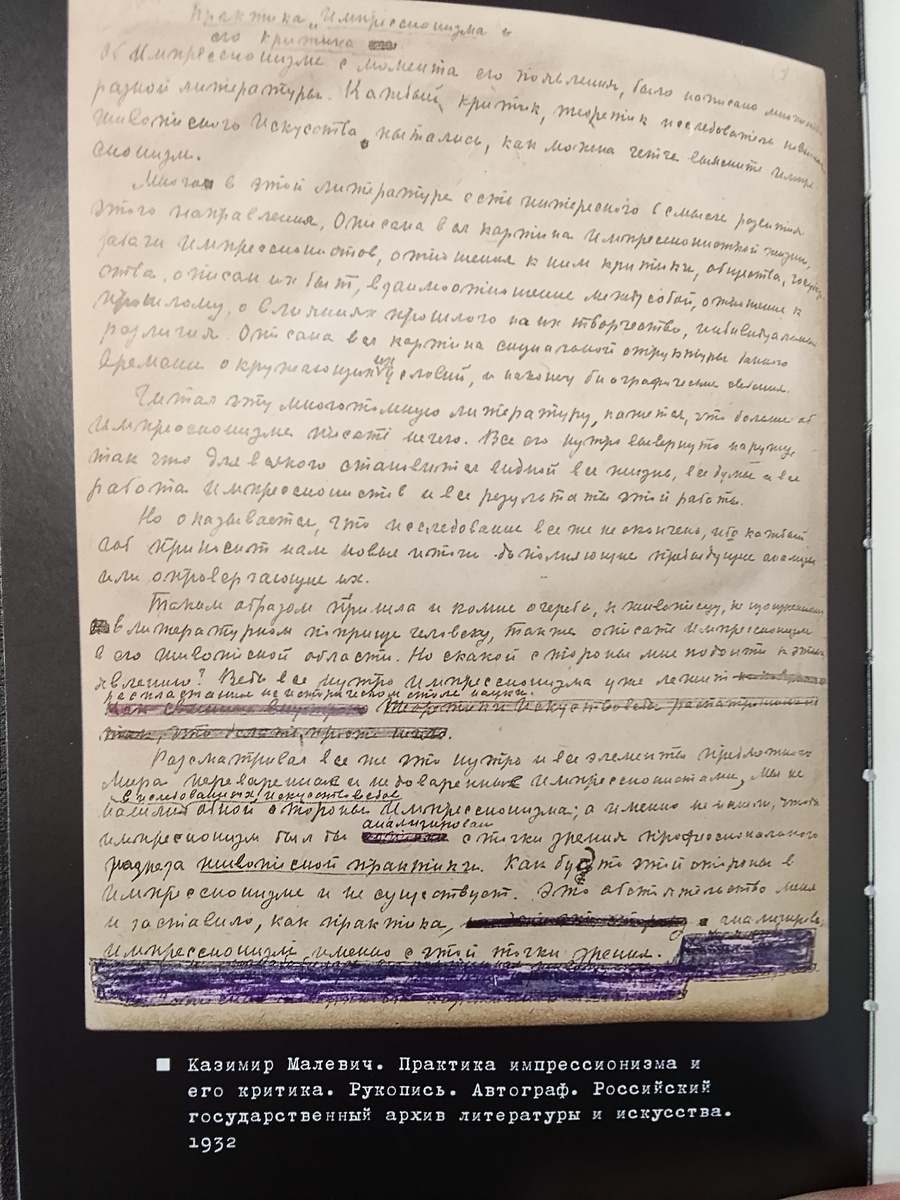 Практика „Импрессионизма и
его критика
Об Импрессионизме с момента его появления, было написано много
разной литературы. Каждый критик, теоретик исследователь
живописного Искусства, пытались, как можна четче выяснить Импре
сионизм.
Многа в этой литературе есть интересного в смысле развития
этого направления, Описана вся картина Импрессионисткой жизни,
задачи Импрессионистов, отношения к ним критики, общества, госуда
ства, описан их быт, взаимоотношение между собой, отношение к
прошлому, о влияниях прошлого на их творчество, индивидуальныя
различия. Описана вся картина социальной структуры даного
времени окружающих их условий, и наконец биографические сведения.
Читая эту многотомную литературу, кажется, что больше об
Импрессионизме писать нечего. Все его нутро вывернуто наружу
так что для всякого становится видной вся жизнь, все думы и вся
работа Импрессионистов и все результаты этой работы.
Но оказывается, что исследование все же не окончено, ибо каждый
год приносит нам новые итоги дополняющие предыдущие анализы
или опровергающие их.
Таким образом пришла и комне очередь, к живописцу, не
в литературном поприще человеку, также описать Импрессионизм
в его живописной области. Но скакой стороны мне подойти к этому
явлению? Ведь все нутро Импрессионизма уже лежит
распластаным на историческом столе науки.
Теоретики Искусствоведы
так, что делать просто нечего.
Рассматривая все же это нутро и все элементы предложного
мира переваренных и недоваренных Импрессионистами, мы не
в иследованиях искусствоведов
нашли одной стороны Импрессионизма; а именно не нашли, чтобы
анализирован
импрессионизм был бы с точки зрения профессионального
разреза живописной практики. Как будто этой стороны в
Импрессионизме и не существует. Это обстоятельство меня
и заставило, как практика, анализирова
импрессионизм именно с этой точки зрения.
■ Казимир Малевич. Практика импрессионизма и
его критика. Рукопись. Автограф. Российский
государственный архив литературы и искусства.
1932